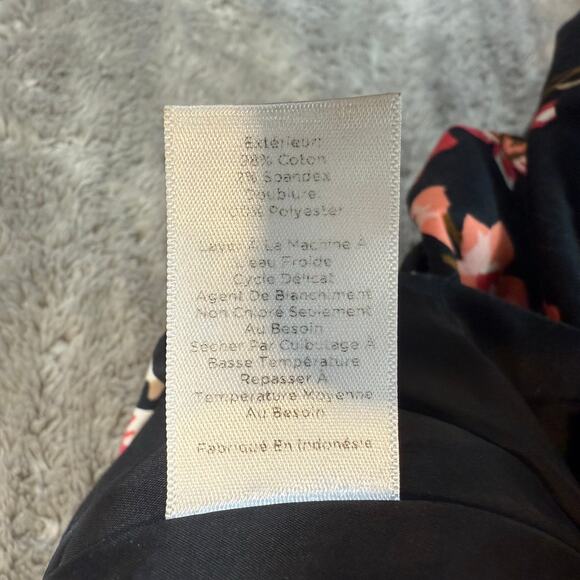 Extérieur:
98% Coton
2% Spandex
Doublure:
100% Polyester
Laver À La Machine À
L'eau Froide
Cycle Délicat
Agent De Blanchiment
Non Chloré Seulement
Au Besoin
Sécher Par Culbutage À
Basse Température
Repasser À
Température Moyenne
Au Besoin
Fabriqué En Indonésie